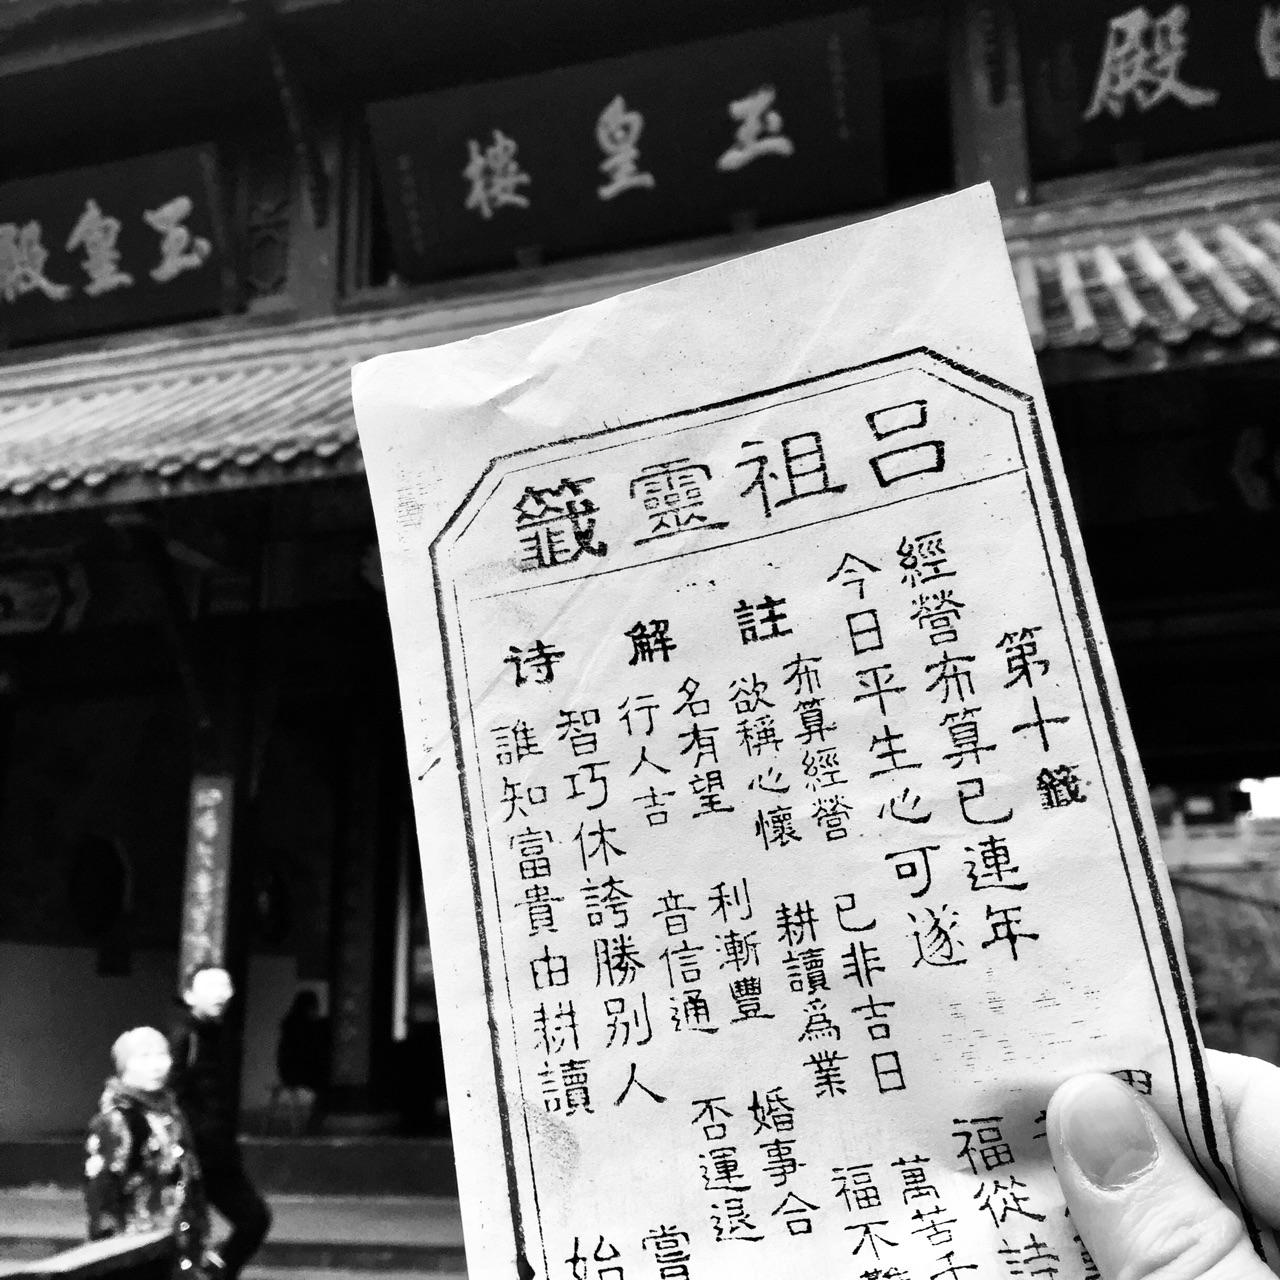 玉皇樓
玉皇殿
殿
呂祖靈籤
第十籤
經營布算已連年
今日平生心可遂
福從詩
註
布算經營 已非吉日 萬苦千
欲稱心懷 耕讀爲業 福不難
解
名有望 利漸豐 婚事合
行人吉 音信通 否運退
诗
智巧休誇勝别人 嘗
誰知富貴由耕讀 始